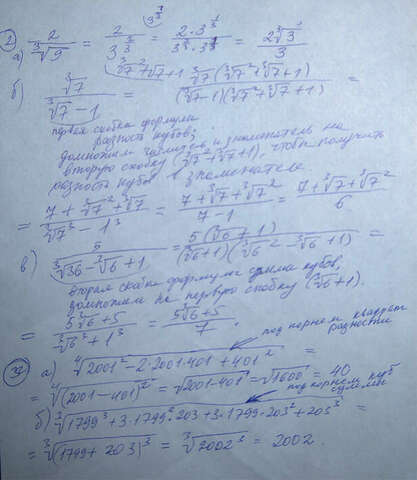 1 а) 2/∛9 = 2/3^(2/3) = 2·3^(1/3)/(3^(2/3)·3^(1/3)) = 2∛3/3
б) ∛7/(∛7-1) = ∛7(∛7²+∛7+1)/((∛7-1)(∛7²+∛7+1)) =
первая скобка формулы
разность кубов;
домножим числитель и знаменатель на
вторую скобку (∛7²+∛7+1), чтобы получить
разность кубов в знаменателе
= (7+∛7²+∛7)/(∛7³-1³) = (7+∛7+∛7²)/(7-1) = (7+∛7+∛7²)/6
в) 5/(∛36-∛6+1) = 5(∛6+1)/((∛6+1)(∛6²-∛6+1)) =
вторая скобка формулы сумма кубов,
домножим на первую скобку (∛6+1).
= (5∛6+5)/(∛6³+1³) = (5∛6+5)/7.
а) ∜(2001²-2·2001·401+401²) =
под корнем квадрат
разности
= ∜(2001-401)² = √(2001-401) = √1600 = 40
под корнем куб
суммы
б) ∛(1799³+3·1799²·203+3·1799·203²+203³) =
= ∛(1799+203)³ = ∛2002³ = 2002.